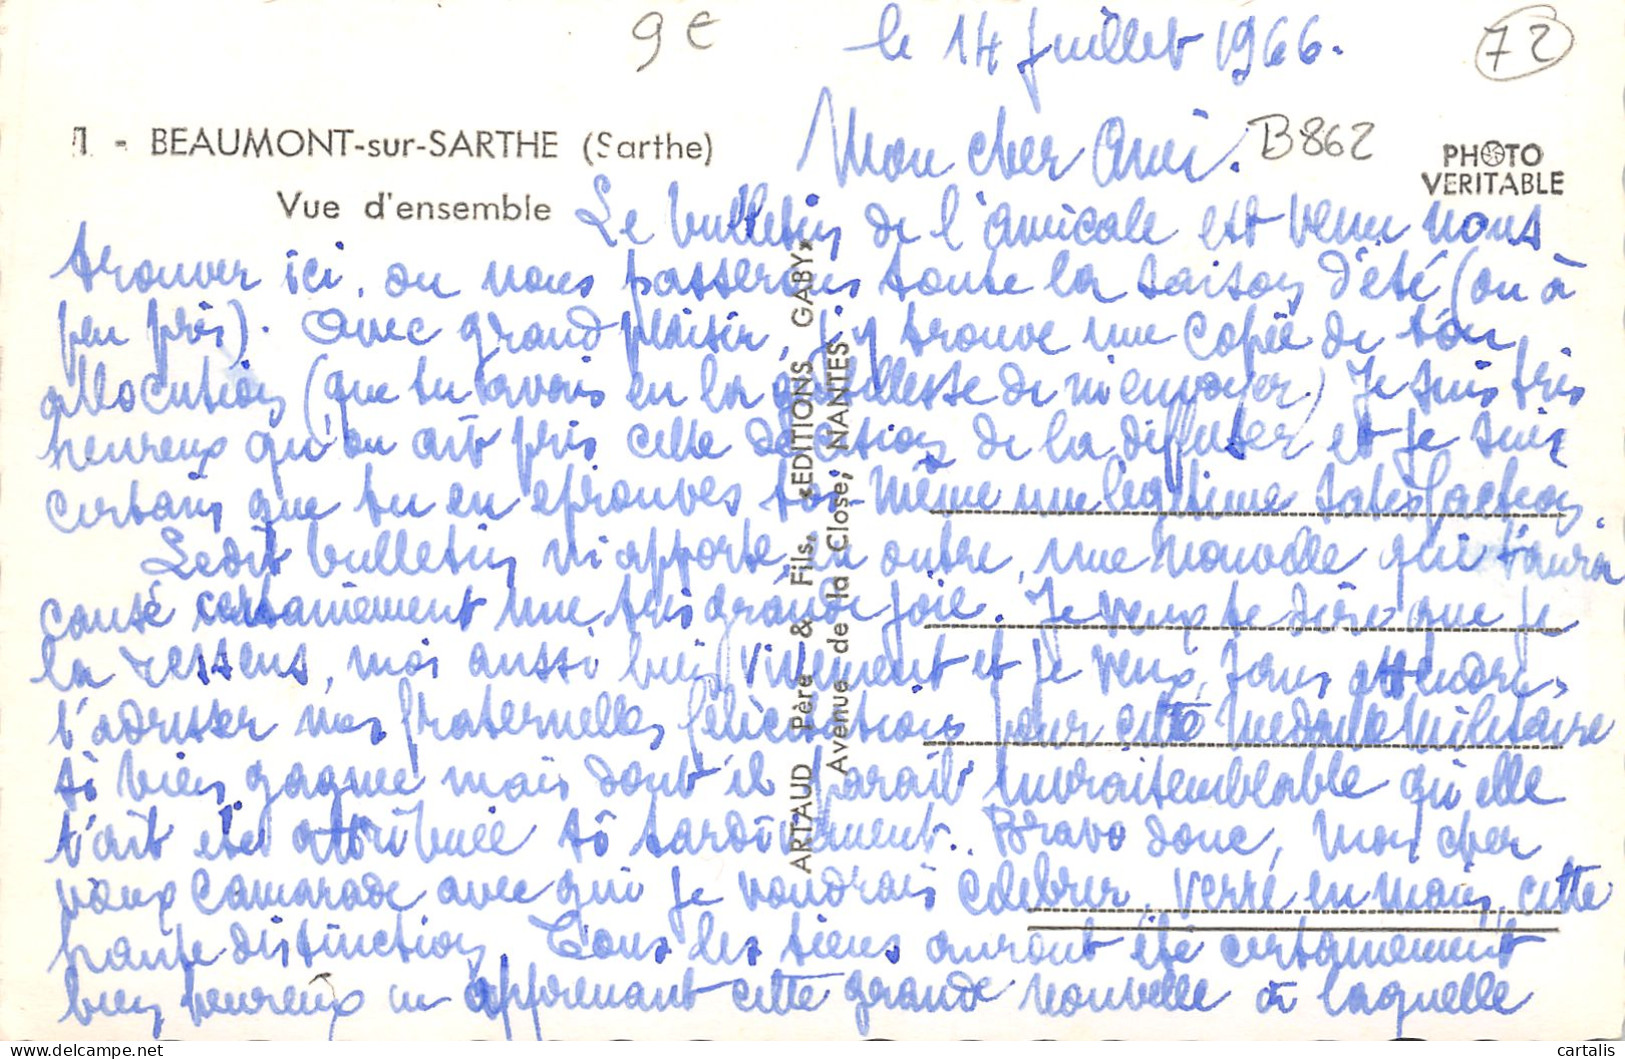 9€
le 14 juillet 1966.
72
1 - BEAUMONT-sur-SARTHE (Sarthe)
Vue d'ensemble
Mon cher Ami.
B862
PHOTO
VERITABLE
Le bulletin de l'amicale est venu nous
trouver ici, ou nous passerons toute la saison d'été (ou à
peu près). Avec grand plaisir, j'y trouve une copie de ton
allocution (que tu avais eu la gentillesse de m'envoyer) Je suis très
heureux qu'on ait pris cette décision de la diffuser et je suis
certain que tu en eprouves toi-même une légitime satisfaction.
Ledit bulletin m'apporte, en outre, une nouvelle qui t'aura
causé certainement une très grande joie. Je veux te dire que je
la ressens, moi aussi bien vivement et je veux, sans attendre,
t'adresser mes fraternelles félicitations pour cette médaille militaire
si bien gagnée mais dont il parait invraisemblable qu'elle
t'ait été attribuée si tardivement. Bravo donc, mon cher
vieux camarade avec qui je voudrais celebrer, verre en main, cette
haute distinction. Tous les tiens auront été certainement
bien heureux en apprenant cette grande nouvelle à laquelle
ARTAUD Père & Fils. «EDITIONS GABY»
Avenue de la Close, NANTES
cartalis